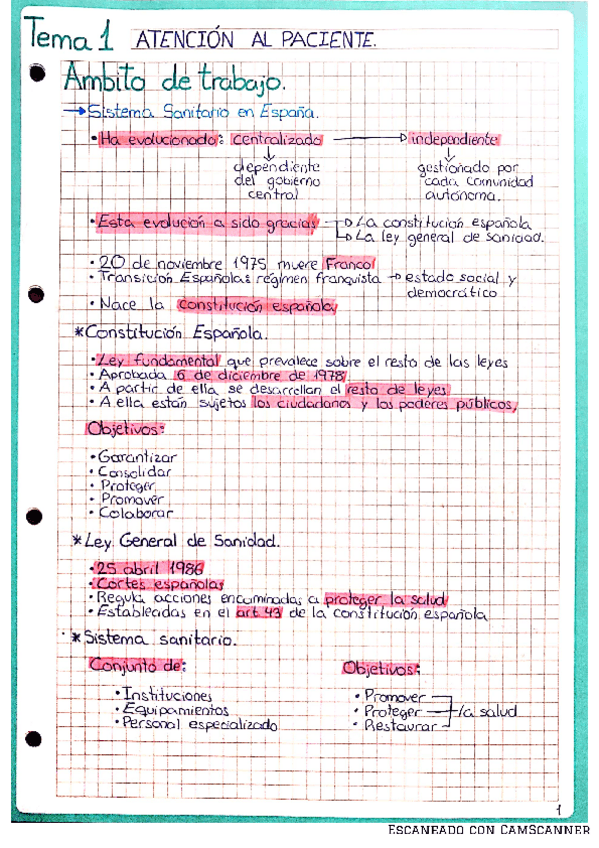 Tema 1 ATENCIÓN AL PACIENTE.
Ambito de trabajo.
→ Sistema Sanitario en España.
• Ha evolucionado: centralizado → independiente
↓ ↓
dependiente gestionado por
del gobierno cada comunidad
central autónoma.
• Esta evolución a sido gracias → La constitución española
→ La ley general de sanidad.
• 20 de noviembre 1975 muere Franco
• Transición Española: régimen franquista → estado social y
democrático
• Nace la constitución española
* Constitución Española.
• Ley fundamental que prevalece sobre el resto de las leyes
• Aprobada 6 de diciembre de 1978
• A partir de ella se desarrollan el resto de leyes
• A ella están sujetos los ciudadanos y los poderes públicos,
Objetivos:
• Garantizar
• Consolidar
• Proteger
• Promover
• Colaborar
* Ley General de Sanidad.
• 25 abril 1986
• Cortes españolas
• Regula acciones encaminadas a proteger la salud
• Establecidas en el art 43 de la constitución española
* Sistema sanitario.
Conjunto de: Objetivos:
• Instituciones • Promover
• Equipamientos • Proteger la salud
• Personal especializado • Restaurar
1
ESCANEADO CON CAMSCANNER